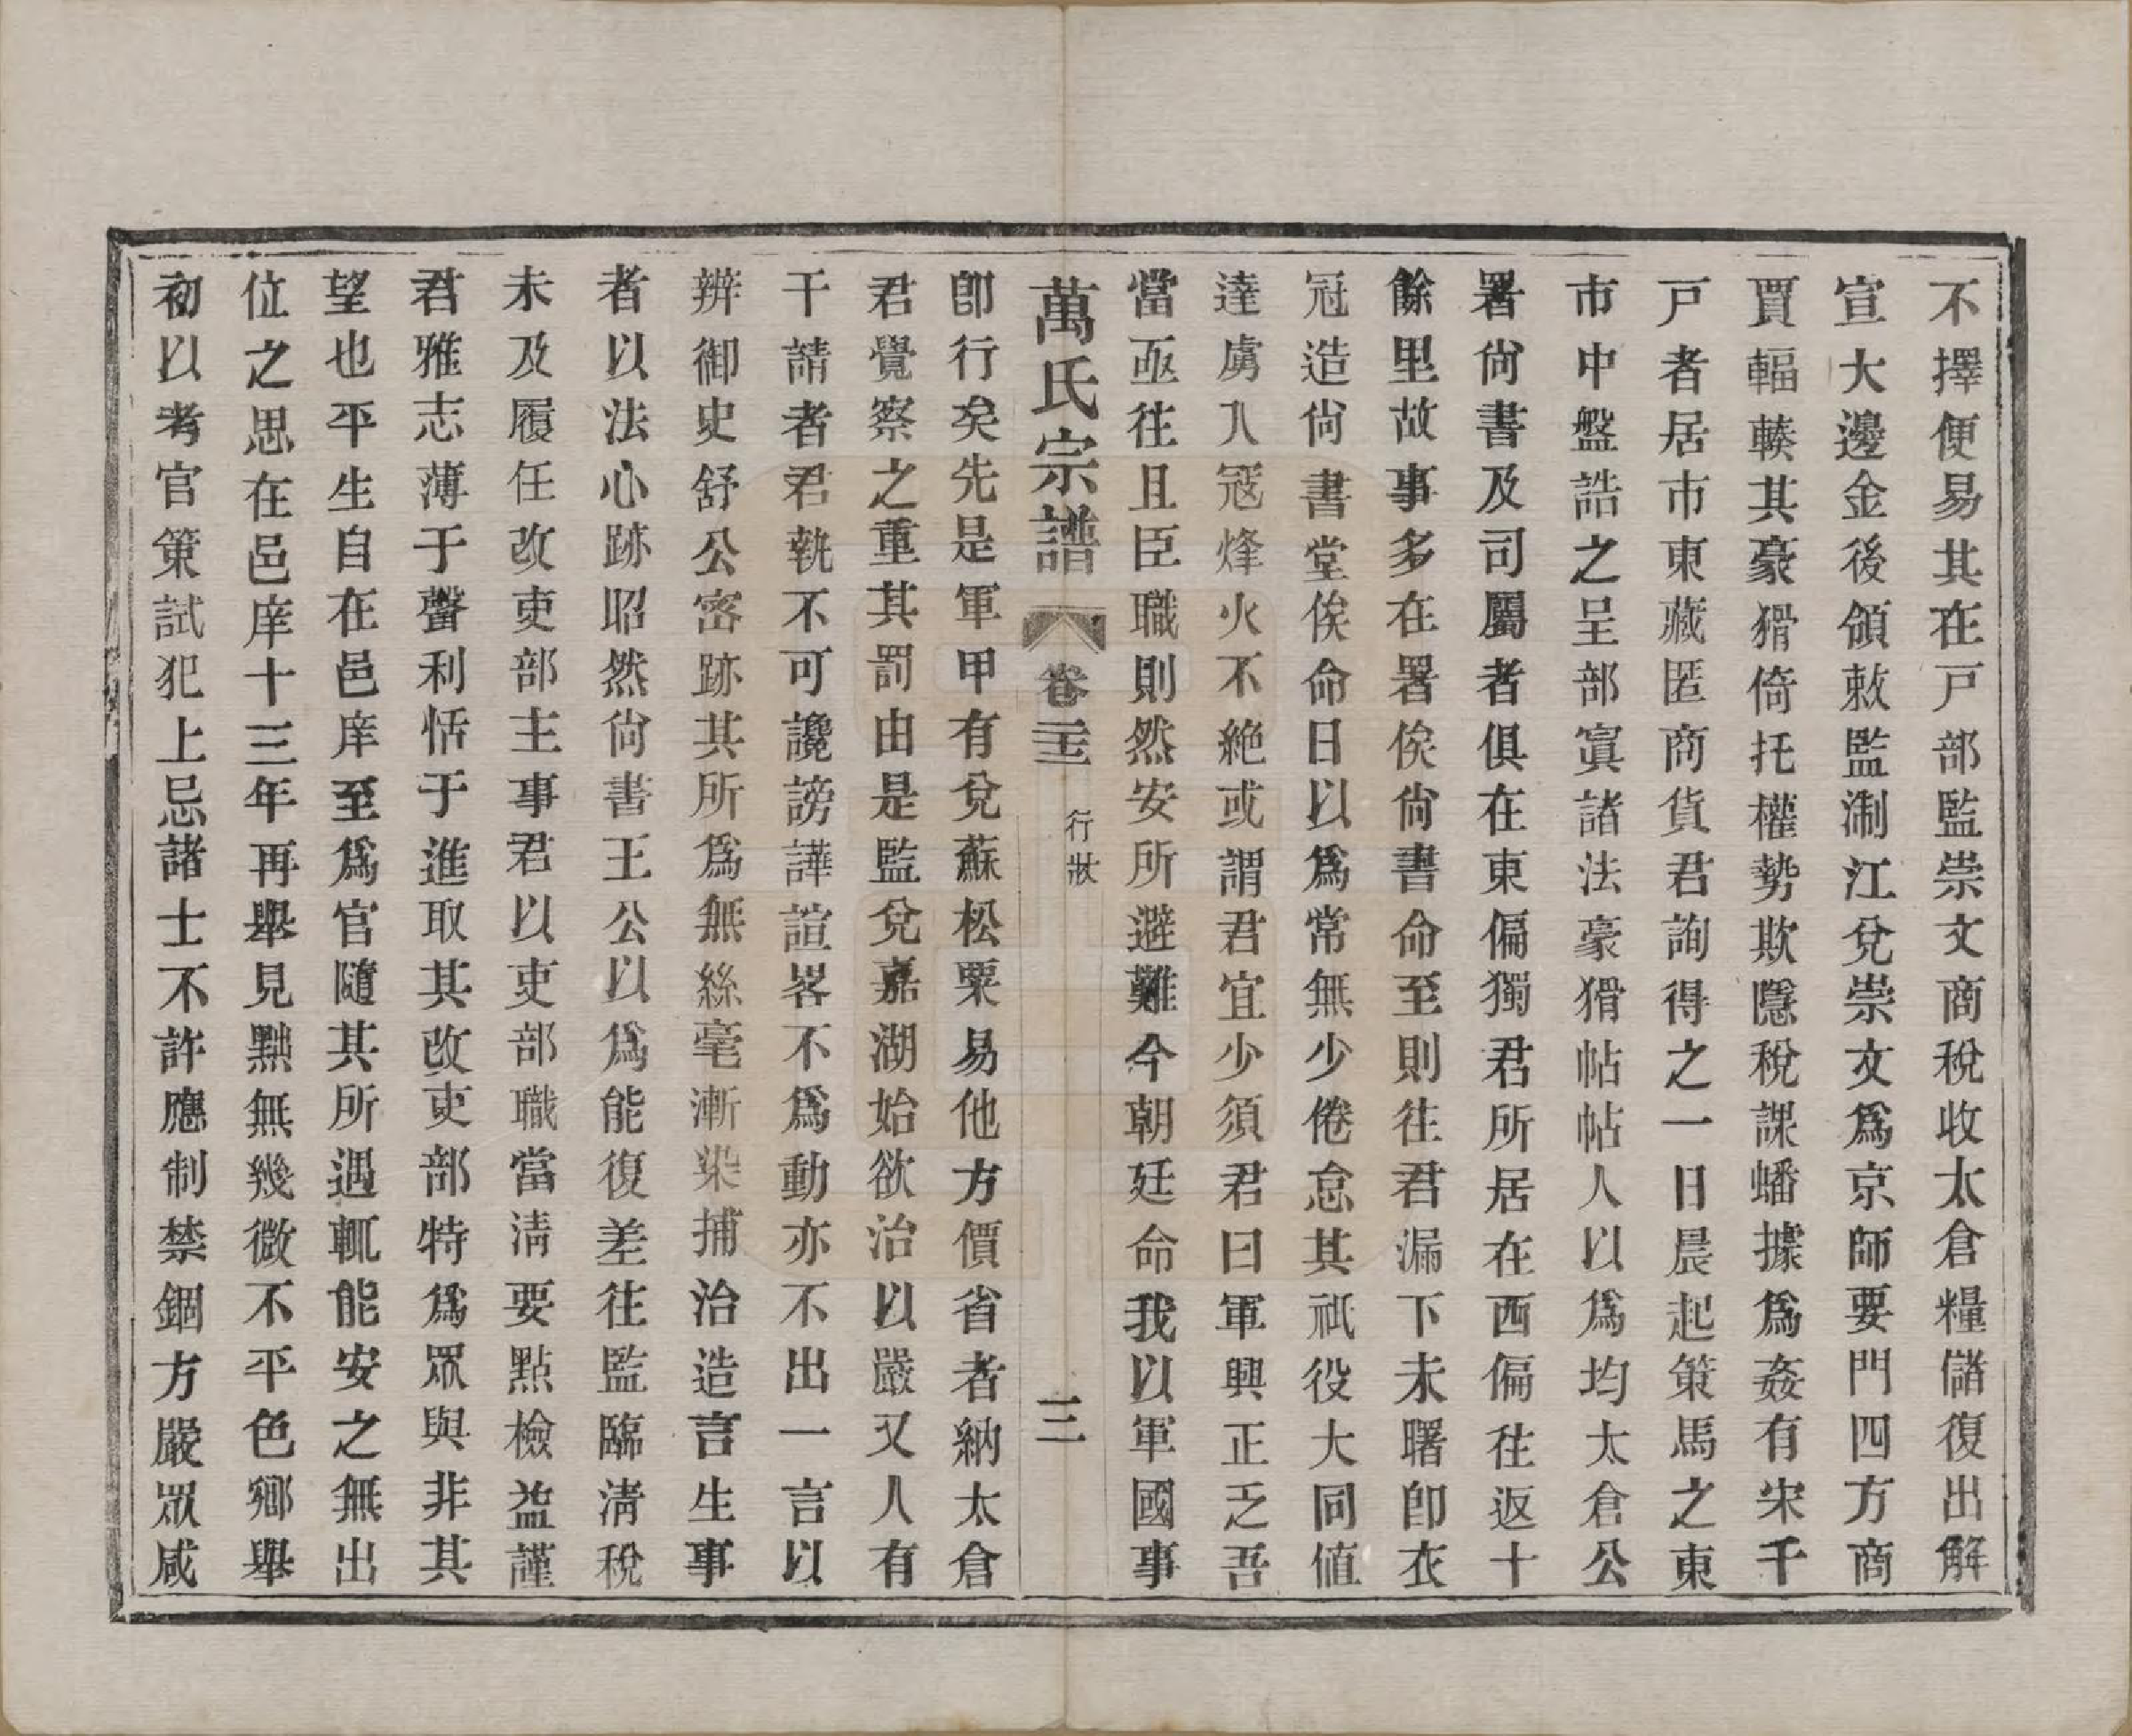 不擇便易其在戸部監崇文商稅收太倉糧儲復出解
宣大邊金後領敕監淛江兌崇文爲京師要門四方商
賈輻輳其豪猾倚托權勢欺隱稅課蟠據爲姦有宋千
戸者居市東藏匿商貨君詢得之一日晨起策馬之東
市中盤詰之呈部寘諸法豪猾帖帖人以爲均太倉公
署尙書及司屬者俱在東偏獨君所居在西偏往返十
餘里故事多在署俟尙書命至則往君漏下未曙卽衣
冠造尙書堂俟命日以爲常無少倦怠其祇役大同値
達虜入寇烽火不絶或謂君宜少須君曰軍興正乏吾
當亟往且臣職則然安所避難今朝廷命我以軍國事
萬氏宗譜 卷二十三 行狀 三
卽行矣先是軍甲有兌蘇松粟易他方價省者納太倉
君覺察之重其罰由是監兌嘉湖始欲治以嚴又人有
干請者君執不可讒謗譁諠畧不爲動亦不出一言以
辨御史舒公密跡其所爲無絲毫漸染捕治造言生事
者以法心跡昭然尙書王公以爲能復差往監臨淸稅
未及履任改吏部主事君以吏部職當淸要點檢益謹
君雅志薄于聲利恬于進取其改吏部特爲眾與非其
望也平生自在邑庠至爲官隨其所遇輒能安之無出
位之思在邑庠十三年再舉見黜無幾微不平色鄉舉
初以考官策試犯上忌諸士不許應制禁錮方嚴眾咸